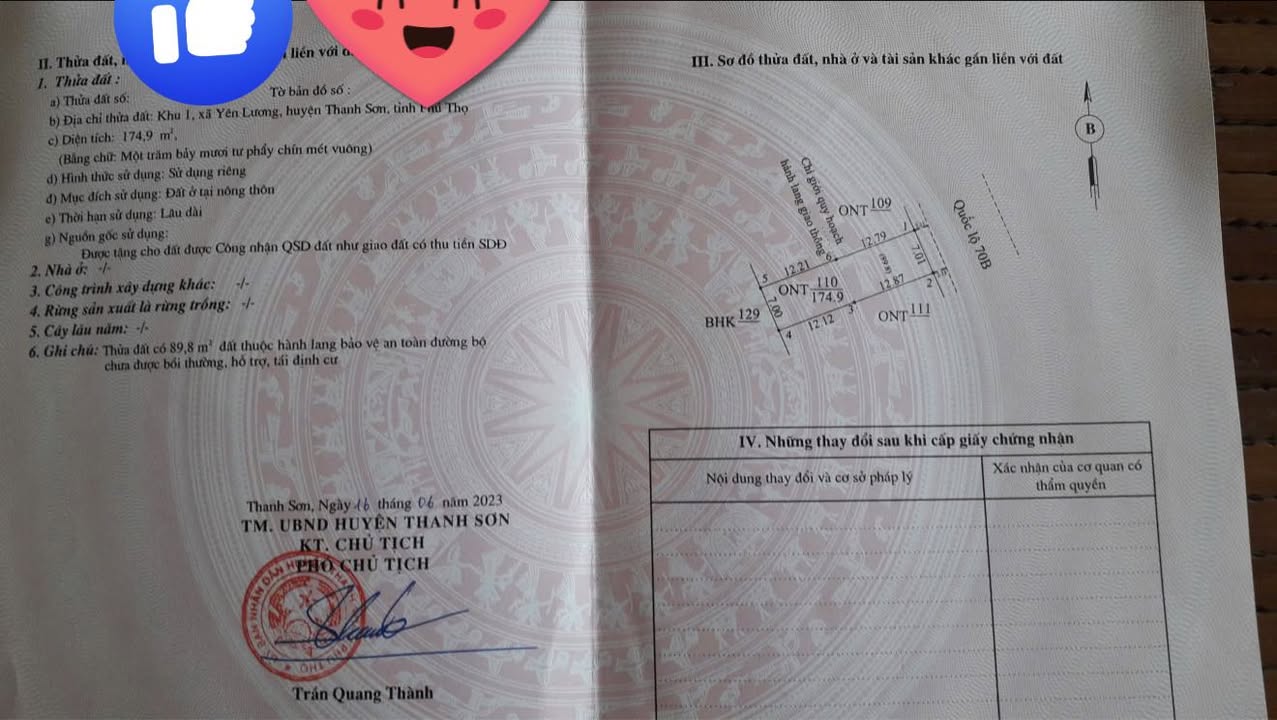 II. Thửa đất,
liền với
1. Thửa đất :
a) Thửa đất số:
Tờ bản đồ số :
b) Địa chỉ thửa đất: Khu 1, xã Yên Lương, huyện Thanh Sơn, tỉnh Phú Thọ
c) Diện tích: 174,9 m²,
(Bằng chữ: Một trăm bảy mươi tư phẩy chín mét vuông)
d) Hình thức sử dụng: Sử dụng riêng
đ) Mục đích sử dụng: Đất ở tại nông thôn
e) Thời hạn sử dụng: Lâu dài
g) Nguồn gốc sử dụng:
Được tặng cho đất được Công nhận QSD đất như giao đất có thu tiền SDĐ
2. Nhà ở: -/-
3. Công trình xây dựng khác: -/-
4. Rừng sản xuất là rừng trồng: -/-
5. Cây lâu năm: -/-
6. Ghi chú: Thửa đất có 89,8 m² đất thuộc hành lang bảo vệ an toàn đường bộ
chưa được bồi thường, hỗ trợ, tái định cư
Thanh Sơn, Ngày 16 tháng 06 năm 2023
TM. UBND HUYỆN THANH SƠN
KT. CHỦ TỊCH
PHÓ CHỦ TỊCH
Trần Quang Thành
III. Sơ đồ thửa đất, nhà ở và tài sản khác gắn liền với đất
B
Chỉ giới quy hoạch
hành lang giao thông
ONT 109
Quốc lộ 70B
1
12.79
7.01
6
(89.8)
12.21
5
12.87
2
ONT 110
174.9
7.00
3
ONT 111
BHK 129
12.12
4
IV. Những thay đổi sau khi cấp giấy chứng nhận
Nội dung thay đổi và cơ sở pháp lý
Xác nhận của cơ quan có
thẩm quyền